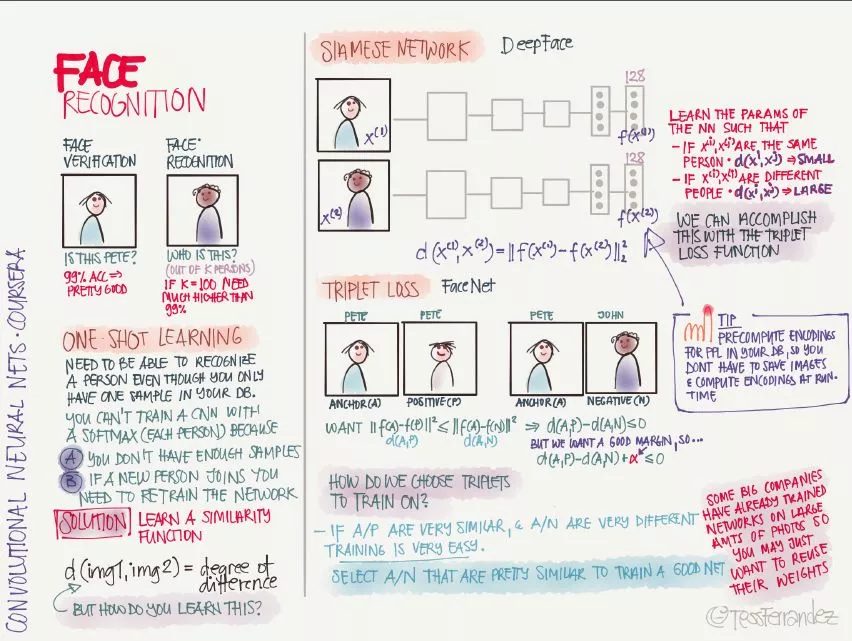 CONVOLUTIONAL NEURAL NETS · COURSERA
FACE
RECOGNITION
FACE
VERIFICATION
IS THIS PETE?
99% ACC ⇒
PRETTY GOOD
FACE·
RECOGNITION
WHO IS THIS?
(OUT OF K PERSONS)
IF K=100 NEED
MUCH HIGHER THAN
99%
ONE SHOT LEARNING
NEED TO BE ABLE TO RECOGNIZE
A PERSON EVEN THOUGH YOU ONLY
HAVE ONE SAMPLE IN YOUR DB.
YOU CAN'T TRAIN A CNN WITH
A SOFTMAX (EACH PERSON) BECAUSE
A YOU DON'T HAVE ENOUGH SAMPLES
B IF A NEW PERSON JOINS YOU
NEED TO RETRAIN THE NETWORK
SOLUTION LEARN A SIMILARITY
FUNCTION
d(img1, img2) = degree of
difference
BUT HOW DO YOU LEARN THIS?
SIAMESE NETWORK DeepFace
x⁽¹⁾
128
f(x⁽¹⁾)
x⁽²⁾
128
f(x⁽²⁾)
d(x⁽¹⁾, x⁽²⁾) = ||f(x⁽¹⁾) - f(x⁽²⁾)||₂²
LEARN THE PARAMS OF
THE NN SUCH THAT
- IF x⁽ⁱ⁾, x⁽ʲ⁾ ARE THE SAME
PERSON · d(xⁱ, xʲ) ⇒ SMALL
- IF x⁽ⁱ⁾, x⁽ʲ⁾ ARE DIFFERENT
PEOPLE · d(xⁱ, xʲ) ⇒ LARGE
WE CAN ACCOMPLISH
THIS WITH THE TRIPLET
LOSS FUNCTION
TIP
PRECOMPUTE ENCODINGS
FOR PPL IN YOUR DB, SO YOU
DONT HAVE TO SAVE IMAGES
& COMPUTE ENCODINGS AT RUN-
TIME
TRIPLET LOSS FaceNet
PETE PETE PETE JOHN
ANCHOR (A) POSITIVE (P) ANCHOR (A) NEGATIVE (N)
WANT ||f(A)-f(P)||² ≤ ||f(A)-f(N)||² ⇒ d(A,P)-d(A,N) ≤ 0
d(A,P) d(A,N)
BUT WE WANT A GOOD MARGIN, SO...
d(A,P)-d(A,N)+α ≤ 0
HOW DO WE CHOOSE TRIPLETS
TO TRAIN ON?
- IF A/P ARE VERY SIMILAR, & A/N ARE VERY DIFFERENT
TRAINING IS VERY EASY.
SELECT A/N THAT ARE PRETTY SIMILAR TO TRAIN A GOOD NET
SOME BIG COMPANIES
HAVE ALREADY TRAINED
NETWORKS ON LARGE
AMTS OF PHOTOS SO
YOU MAY JUST
WANT TO REUSE
THEIR WEIGHTS
@TessFerrandez